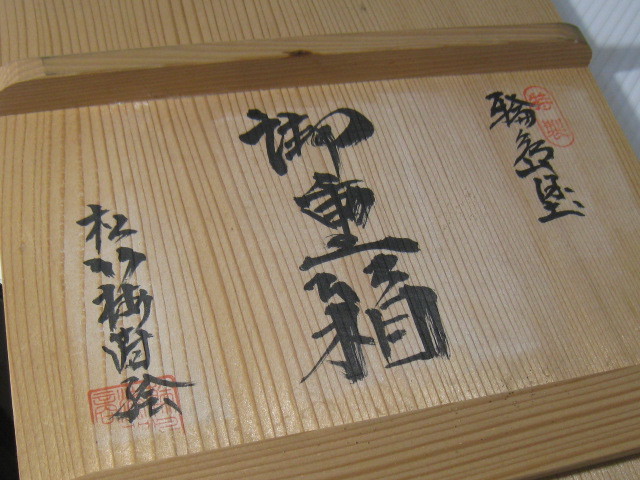 輪島塗
特製
御重箱
松竹梅蒔絵